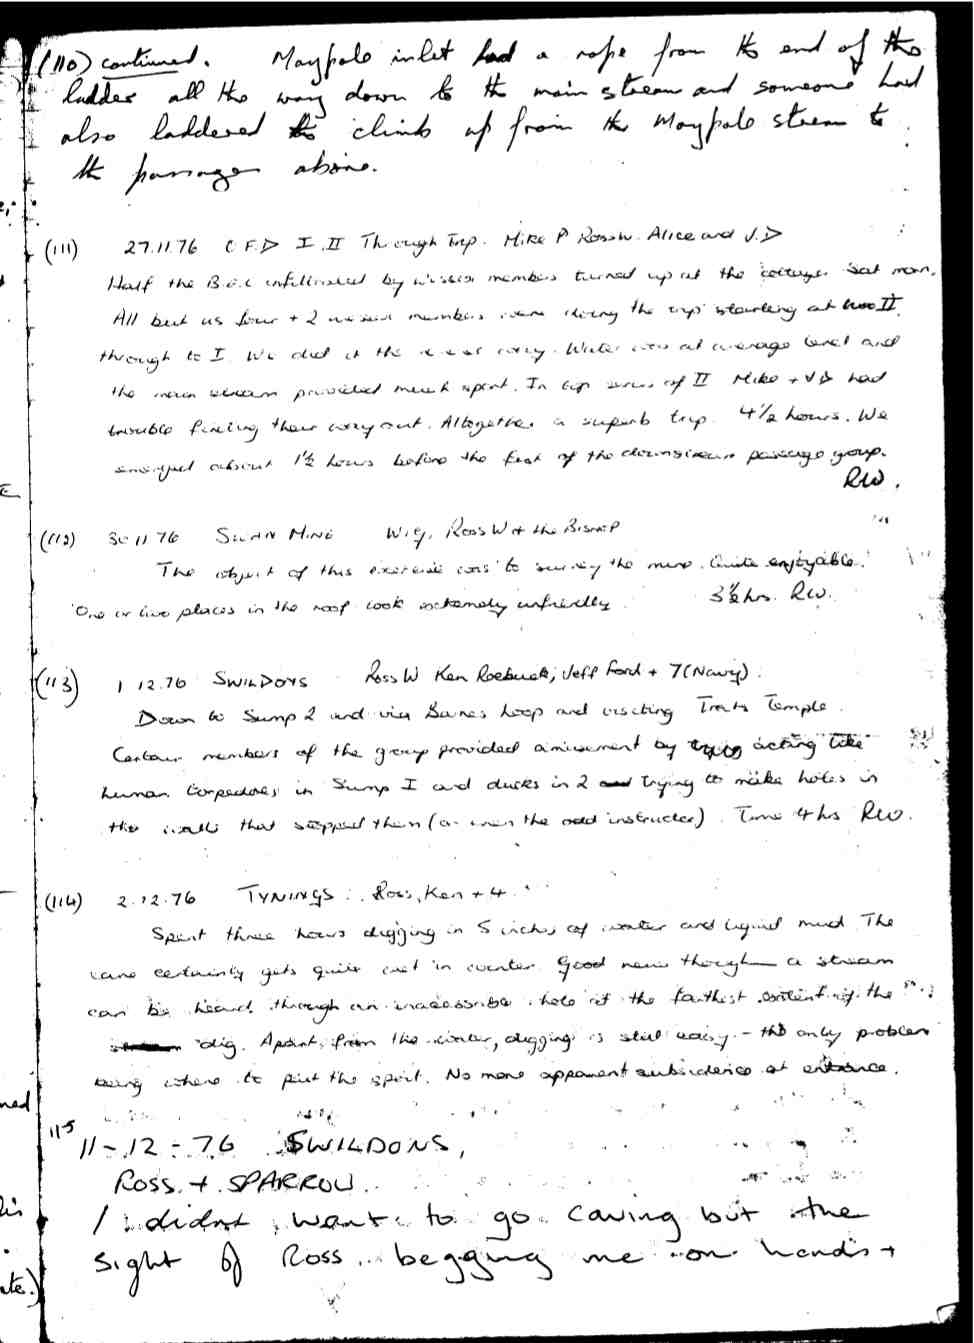 (110) continued. Maypole inlet had a rope from the end of the
ladder all the way down to the main stream and someone had
also laddered the climb up from the Maypole stream to
the passages above.
(111) 27.11.76 O F.D I, II Through Trip. Mike P Ross W. Alice and J.D
Half the B.E.C infiltrated by Wessex members turned up at the cottage Sat morn.
All but us four + 2 Wessex members were doing the trip starting at II
through to I. We did it the other way. Water was at average level and
the main stream provided much sport. In top series of II Mike + J D had
trouble finding their way out. Altogether a superb trip. 4 1/2 hours. We
emerged about 1 1/2 hours before the first of the downstream passage group.
RW.
(112) 30 11 76 SWAN MINE Wig, Ross W + the BISHOP
The object of this exercise was to survey the mine. Quite enjoyable.
One or two places in the roof look extremely unfriendly 3 1/2 hrs. RW.
(113) 1 12.76 SWILDONS Ross W Ken Roebuck, Jeff Ford + 7 (Navy).
Down to Sump 2 and via Barnes Loop and visiting Tratts Temple.
Certain members of the group provided amusement by acting like
human torpedoes in Sump I and ducks in 2 trying to make holes in
the walls that stopped them (or even the odd instructor). Time 4 hrs RW.
(114) 2.12.76 TYNINGS. Ross, Ken + 4.
Spent three hours digging in 5 inches of water and liquid mud The
cave certainly gets quite wet in winter. Good news though a stream
can be heard through an inaccessible hole at the farthest extent of the
dig. Apart from the water, digging is still easy - the only problem
being where to put the spoil. No more apparent subsidence at entrance.
115
11-12-76 SWILDONS,
ROSS + SPARROW.
I didnt want to go caving but the
sight of Ross begging me on hands +